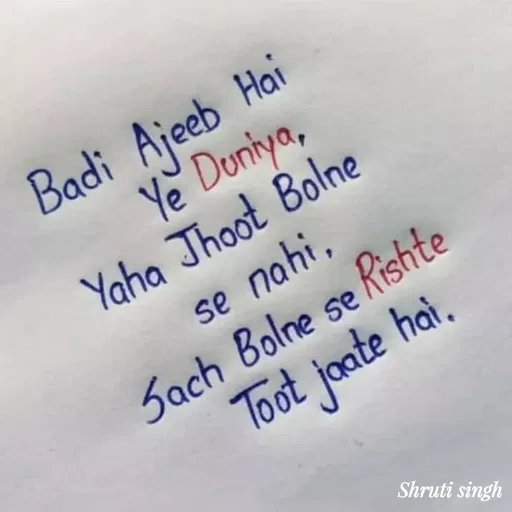 Badi Ajeeb Hai
Ye Duniya,
Yaha Jhoot Bolne
se nahi,
Sach Bolne se Rishte
Toot jaate hai.
Shruti singh